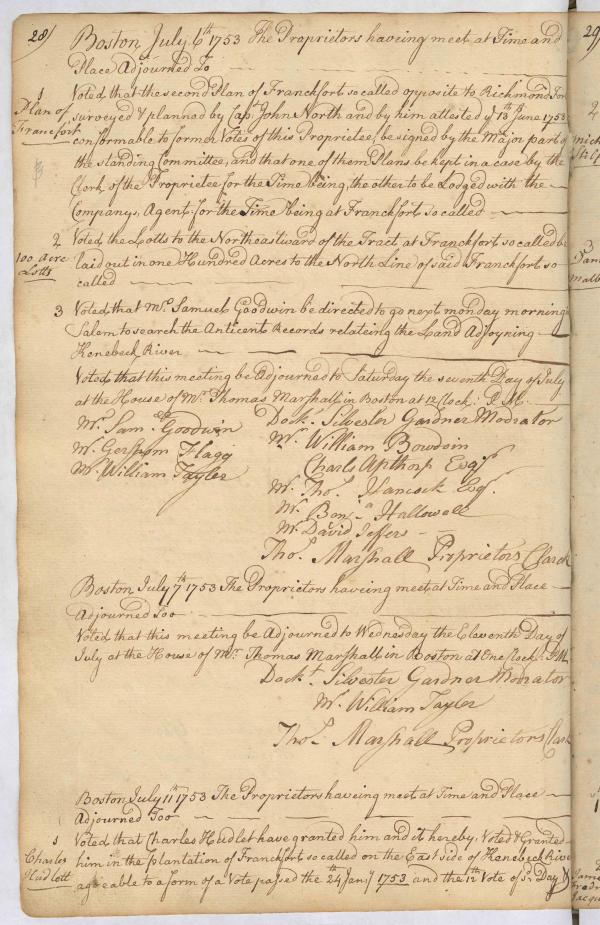 28/
Boston July 6th 1753 The Proprietors haveing meet at Time and
Place Adjourned To
1
Plan of
Francfort
Voted that the second Plan of Franckfort so called opposite to Richmond Fort
surveyed & planned by Capt John North and by him attested ye 18th June 1753
conformable to former Votes of this Proprietee, be signed by the Major part of
the standing Committee, and that one of them Plans be kept in a case by the
Clerk of the Proprietee for the Time being, the other to be Lodged with the
Companys Agent for the Time being at Franckfort so called
2
100 Acre
Lotts
Voted the Lotts to the Northeastward of the Tract at Franckfort so called be
laid out in one Hundred Acres to the North Line of said Franckfort so
called
3 Voted that Mr. Samuel Goodwin be directed to go next monday morning
Salem to search the Antient Records relateing the Land Adjoyning
Kenebeck River
Voted that this meeting be Adjourned to Saturday the seventh Day of July
at the House of Mr. Thomas Marshall in Boston at 12 Clock P.M.
Dockr. Silvester Gardner Modrator
Mr. Saml. Goodwin
Mr. William Bowdoin
Mr. Gershom Flagg
Charls Apthorp Esqr
Mr. William Tayler
Mr. Thos. Hancock Esqr.
Mr. Benja. Hallowell
Mr. David Jeffers
Thos. Marshall Proprietors Clark
Boston July 7th 1753 The Proprietors haveing meet at Time and Place
Adjourned Too
Voted that this meeting be Adjourned to Wednesday the Eleventh Day of
July at the House of Mr. Thomas Marshall in Boston at One Clock P.M.
Dockt. Silvester Gardner Modrator
Mr. William Tayler
Thos. Marshall Proprietors Clark
Boston July 11th 1753 The Proprietors haveing meet at Time and Place
Adjourned Too
1
Charles
Hudlott
Voted that Charles Hudlet have granted him and it hereby Voted & Granted
him in the plantation of Franckfort so called on the East side of Kenebeck River
agreable to a form of a Vote passed the 24th Jany 1753 and the 12th Vote of sd. Day
29/
2
3